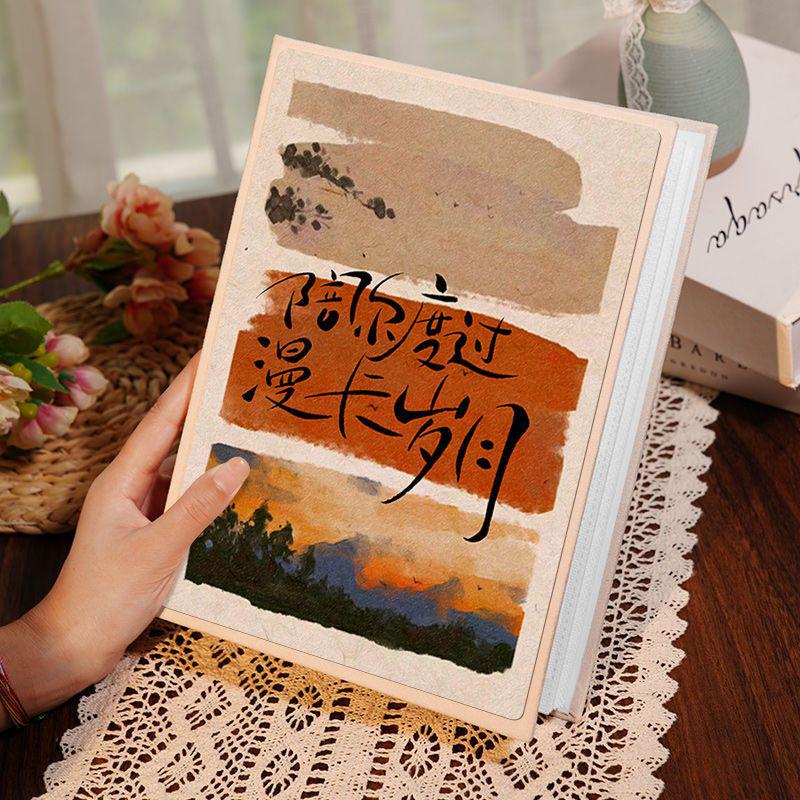 陪你度过
漫长岁月